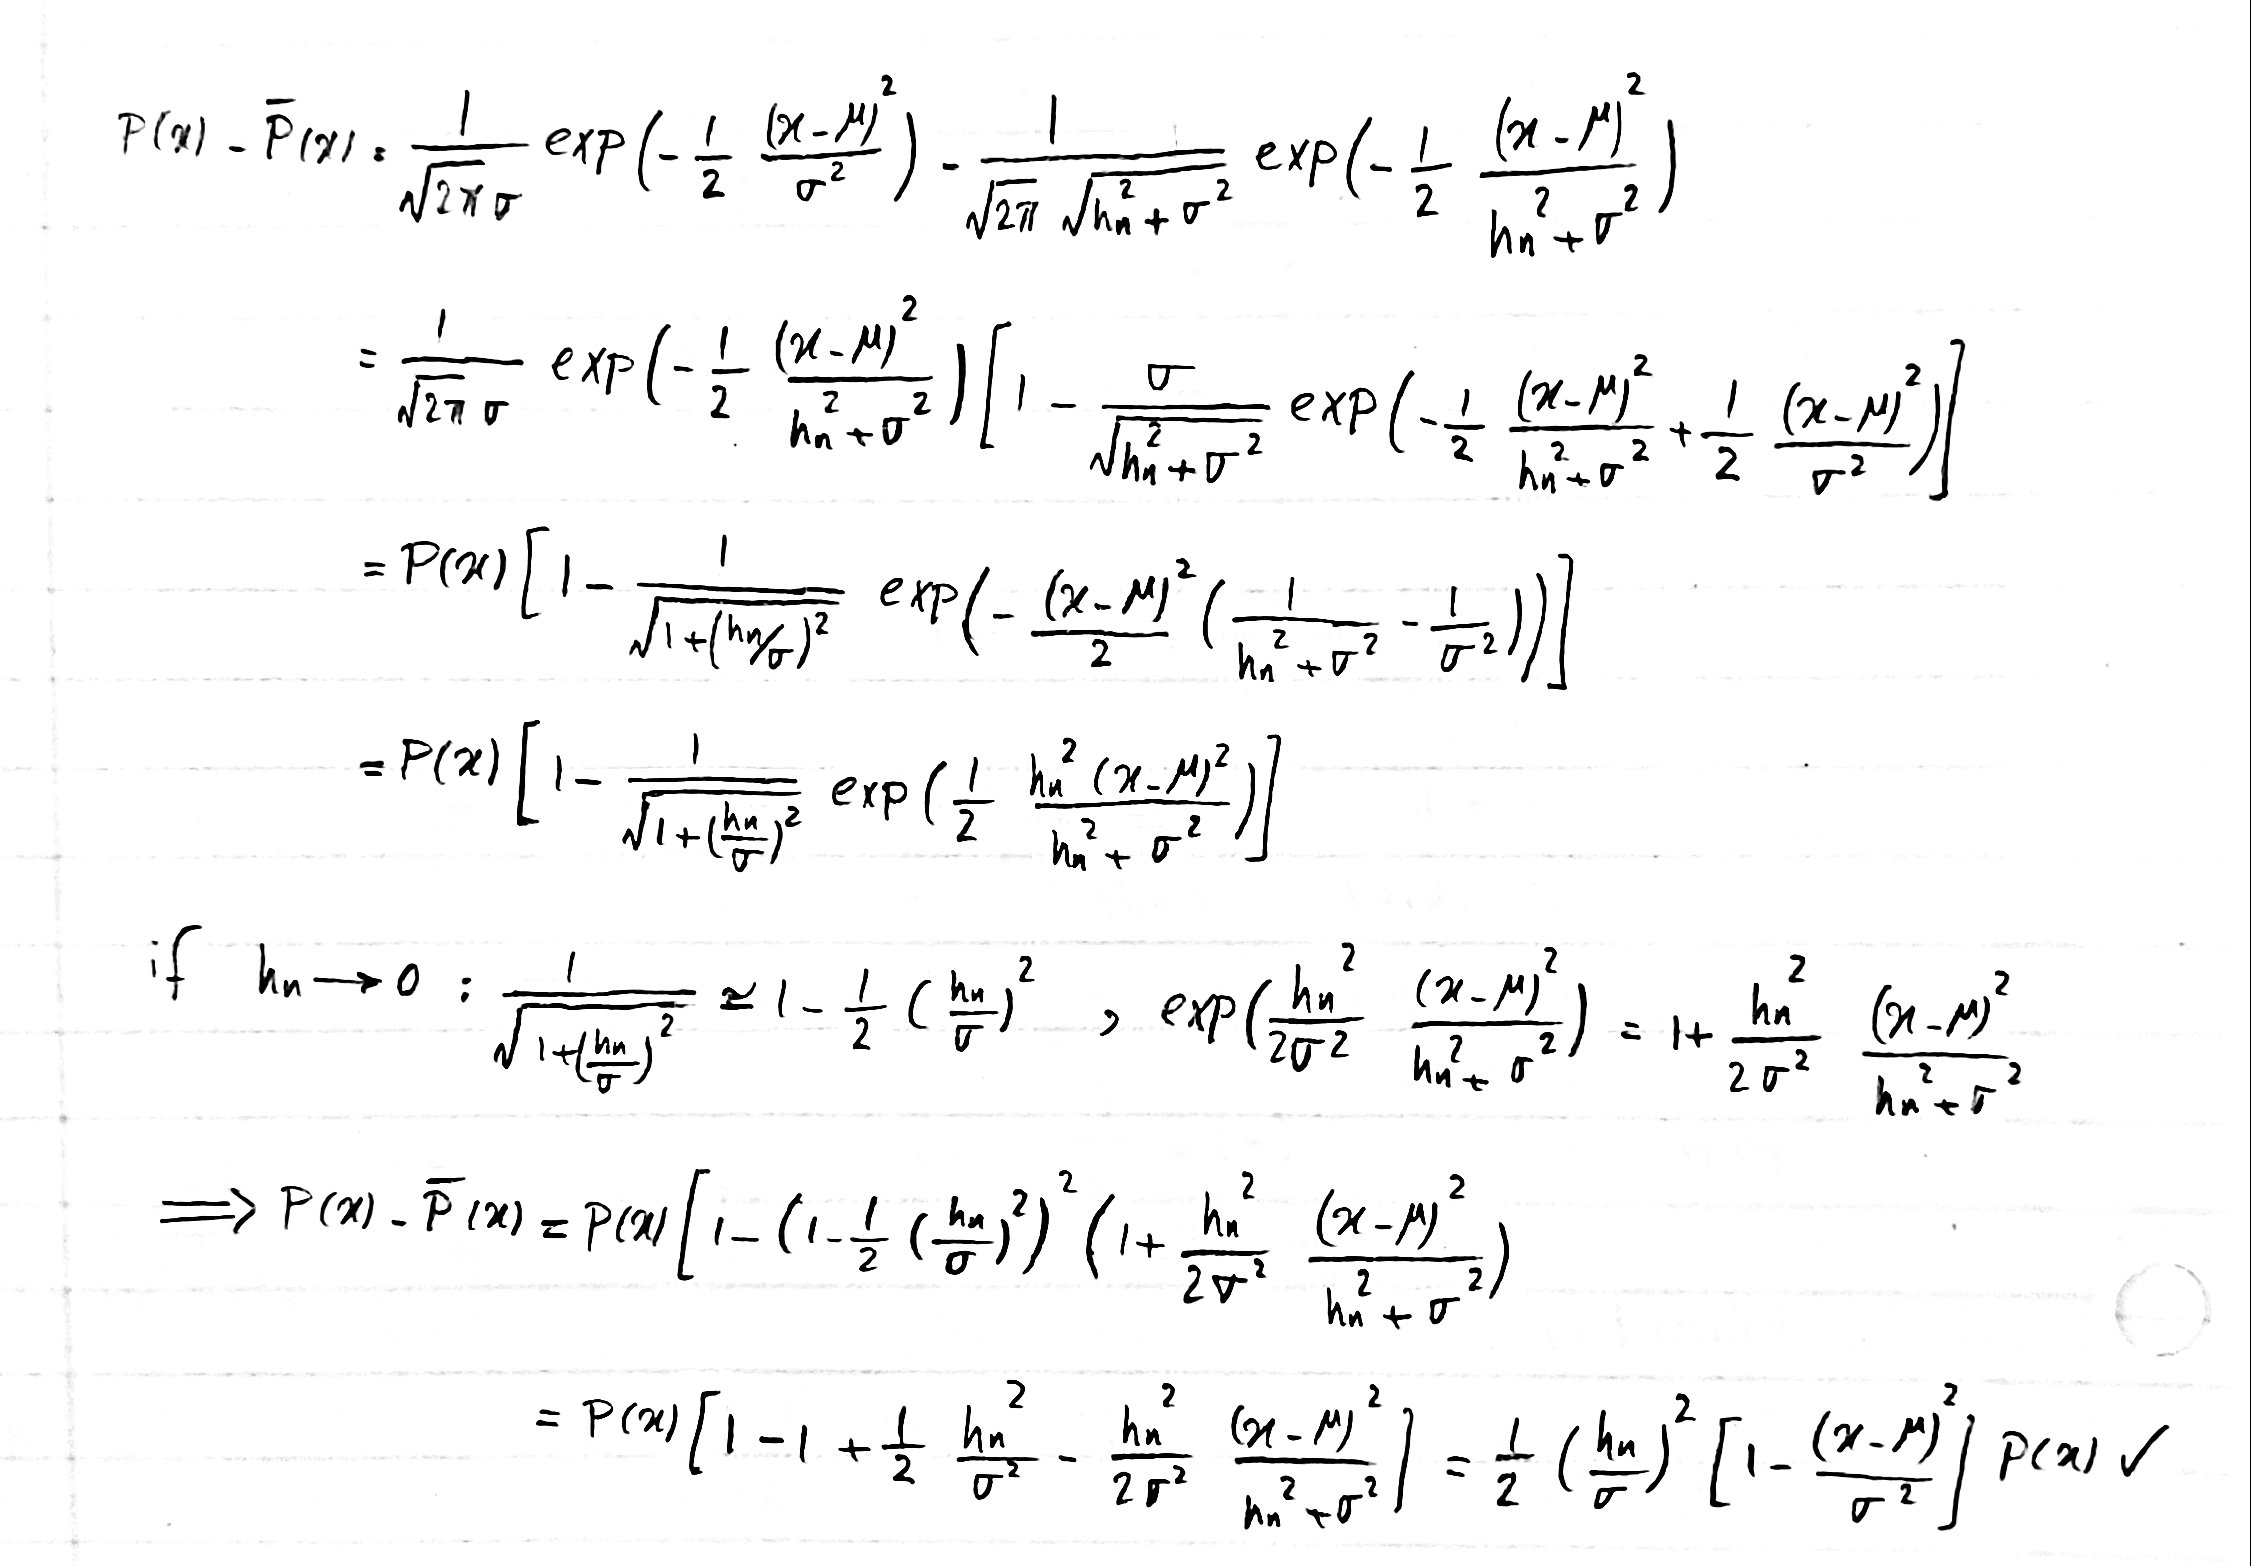 P(x) - P̄(x) = \frac{1}{\sqrt{2π} σ} exp(-\frac{1}{2} \frac{(x-μ)^2}{σ^2}) - \frac{1}{\sqrt{2π} \sqrt{h_n^2 + σ^2}} exp(-\frac{1}{2} \frac{(x-μ)^2}{h_n^2 + σ^2})
= \frac{1}{\sqrt{2π} σ} exp(-\frac{1}{2} \frac{(x-μ)^2}{h_n^2 + σ^2}) [1 - \frac{σ}{\sqrt{h_n^2 + σ^2}} exp(-\frac{1}{2} \frac{(x-μ)^2}{h_n^2 + σ^2} + \frac{1}{2} \frac{(x-μ)^2}{σ^2})]
= P(x) [1 - \frac{1}{\sqrt{1+(h_n/σ)^2}} exp(-\frac{(x-μ)^2}{2} (\frac{1}{h_n^2 + σ^2} - \frac{1}{σ^2}))]
= P(x) [1 - \frac{1}{\sqrt{1+(\frac{h_n}{σ})^2}} exp(\frac{1}{2} \frac{h_n^2 (x-μ)^2}{h_n^2 + σ^2})]
if h_n → 0 : \frac{1}{\sqrt{1+(\frac{h_n}{σ})^2}} ≃ 1 - \frac{1}{2} (\frac{h_n}{σ})^2 , exp(\frac{h_n^2}{2σ^2} \frac{(x-μ)^2}{h_n^2 + σ^2}) = 1 + \frac{h_n^2}{2σ^2} \frac{(x-μ)^2}{h_n^2 + σ^2}
⟹ P(x) - P̄(x) = P(x) [1 - (1 - \frac{1}{2} (\frac{h_n}{σ})^2)^2 (1 + \frac{h_n^2}{2σ^2} \frac{(x-μ)^2}{h_n^2 + σ^2})
= P(x) [1 - 1 + \frac{1}{2} \frac{h_n^2}{σ^2} - \frac{h_n^2}{2σ^2} \frac{(x-μ)^2}{h_n^2 + σ^2}] = \frac{1}{2} (\frac{h_n}{σ})^2 [1 - \frac{(x-μ)^2}{σ^2}] P(x) ✓